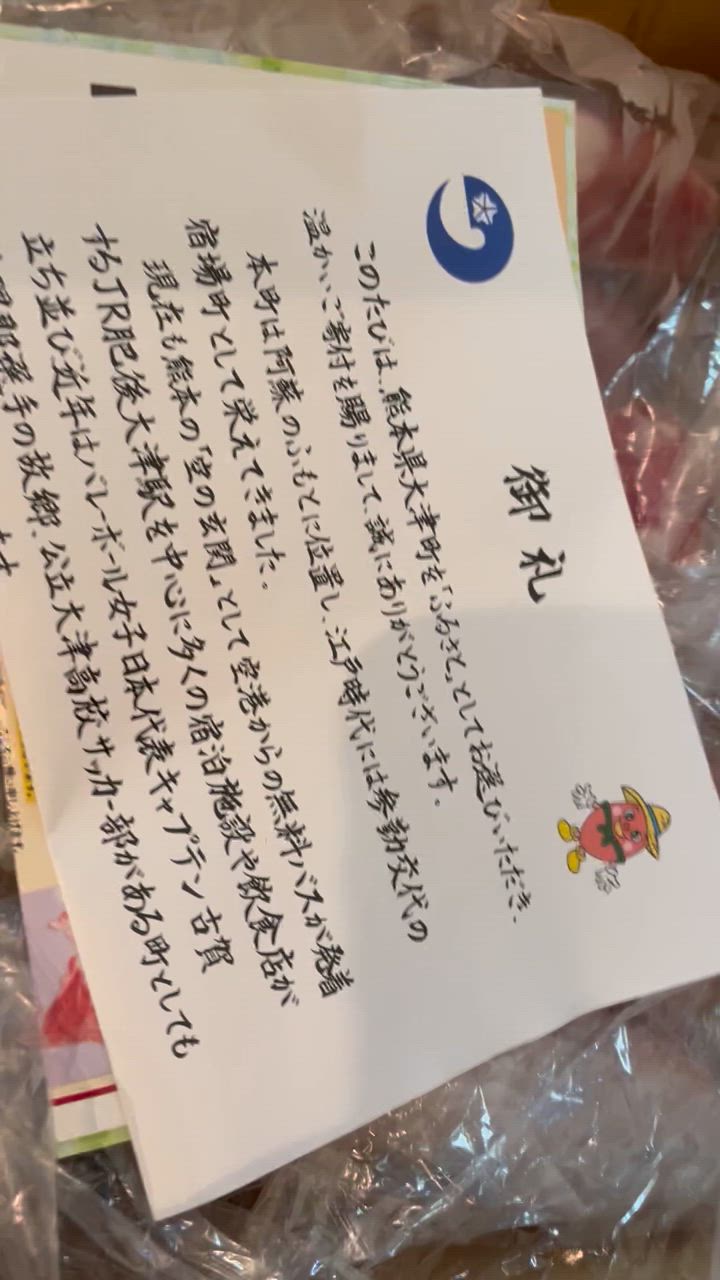 御礼
このたびは、熊本県大津町を「ふるさと」としてお選びいただき、
温かいご寄付を賜りまして、誠にありがとうございます。
本町は阿蘇のふもとに位置し、江戸時代には参勤交代の
宿場町として栄えてきました。
現在も熊本の「空の玄関」として空港からの無料バスが発着
するJR肥後大津駅を中心に多くの宿泊施設や飲食店が
立ち並び近年はバレーボール女子日本代表キャプテン古賀
選手の故郷、公立大津高校サッカー部がある町としても
ます